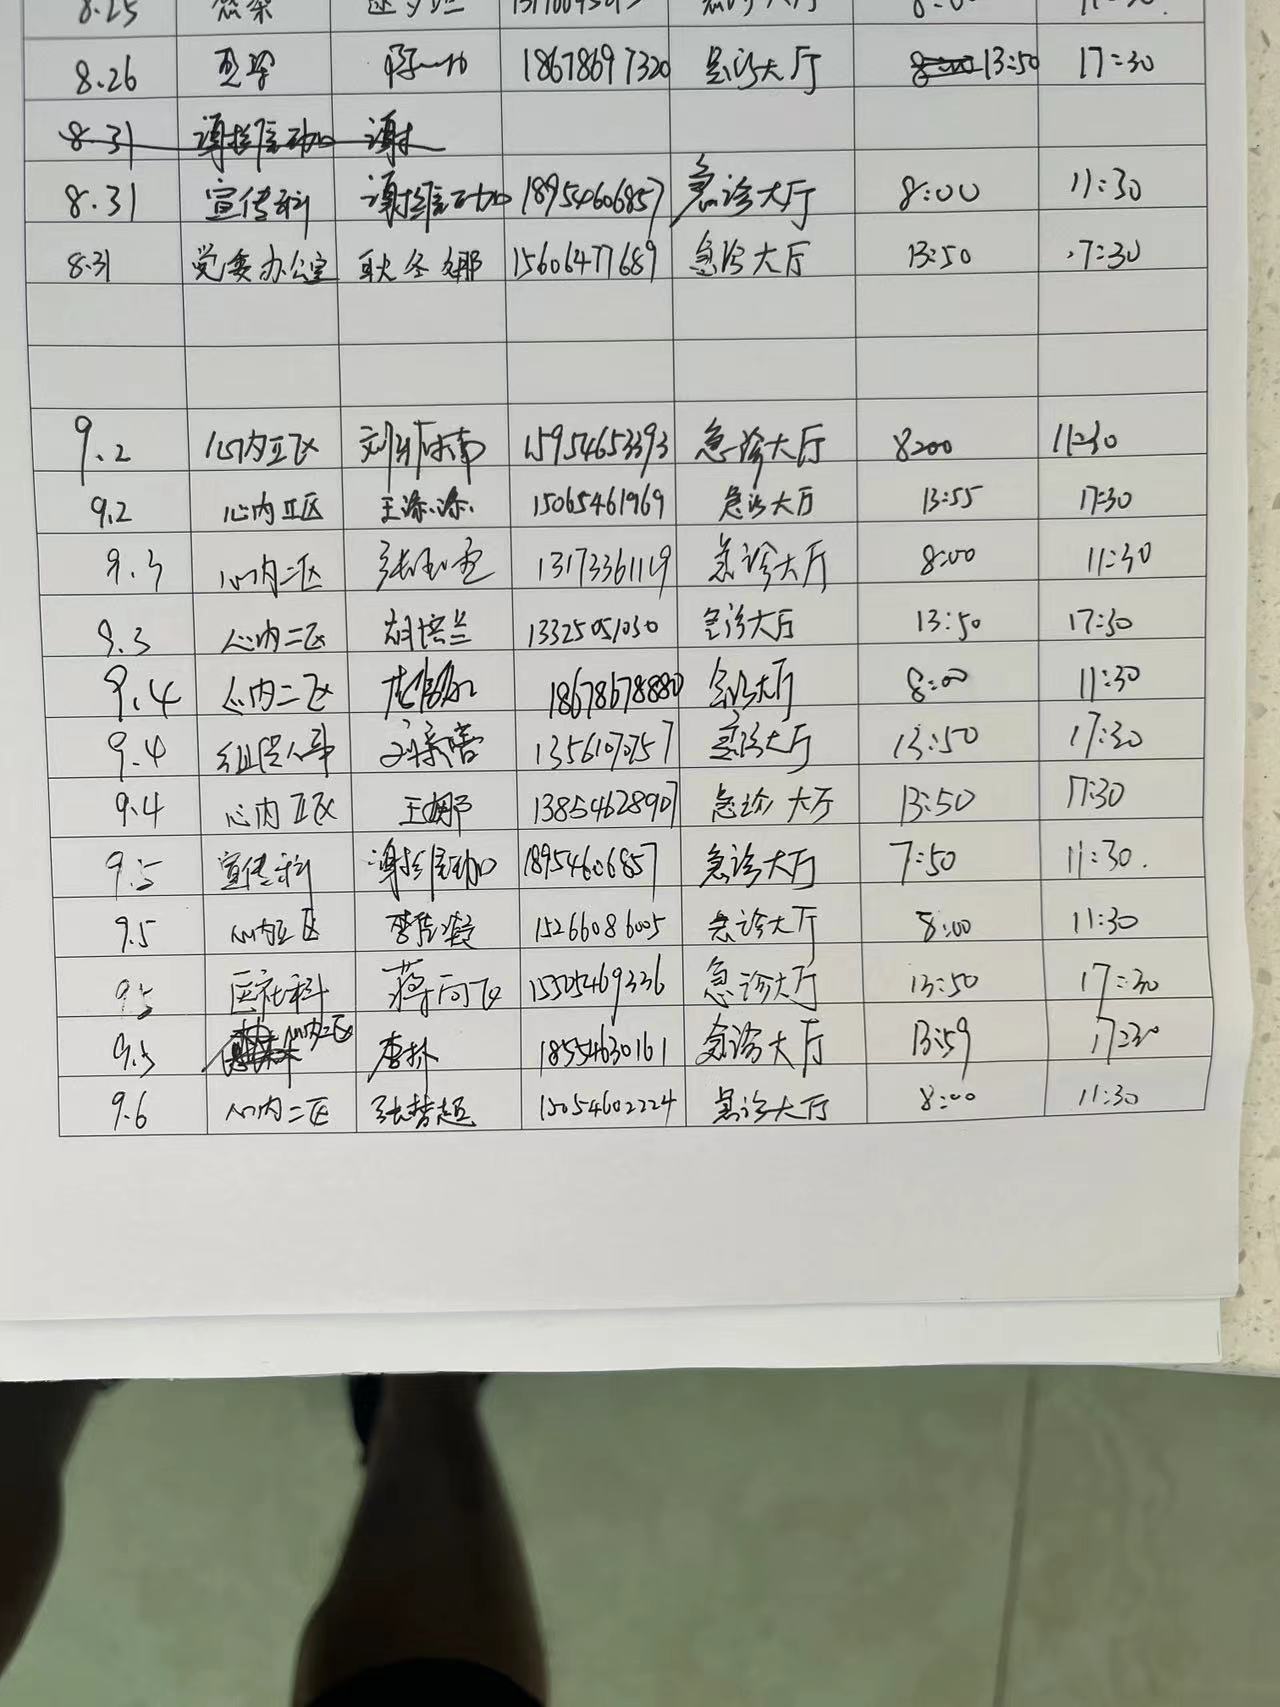 8.25
8.26 18678697320 急诊大厅 8:00 13:50 17:30
8.31 谢
8.31 宣传科 谢 18954606857 急诊大厅 8:00 11:30
8.31 党委办公室 耿冬娜 15606477689 急诊大厅 13:50 17:30
9.2 心内五区 刘 15954653393 急诊大厅 8:00 11:30
9.2 心内五区 王添添 15065461969 急诊大厅 13:55 17:30
9.3 心内二区 张 13173361119 急诊大厅 8:00 11:30
9.3 心内二区 胡培兰 13325051030 急诊大厅 13:50 17:30
9.4 心内二区 18678678880 急诊大厅 8:00 11:30
9.4 组织人事 13:50 17:30
9.4 心内五区 王娜 13854628907 急诊大厅 13:50 17:30
9.5 宣传科 谢 18954606857 急诊大厅 7:50 11:30
9.5 心内五区 李 15266086005 急诊大厅 8:00 11:30
9.5 医社科 蒋向飞 15505469336 急诊大厅 13:50 17:30
9.5 心内二区 李林 18554630161 急诊大厅 13:59 17:30
9.6 心内二区 张梦超 15054602224 急诊大厅 8:00 11:30